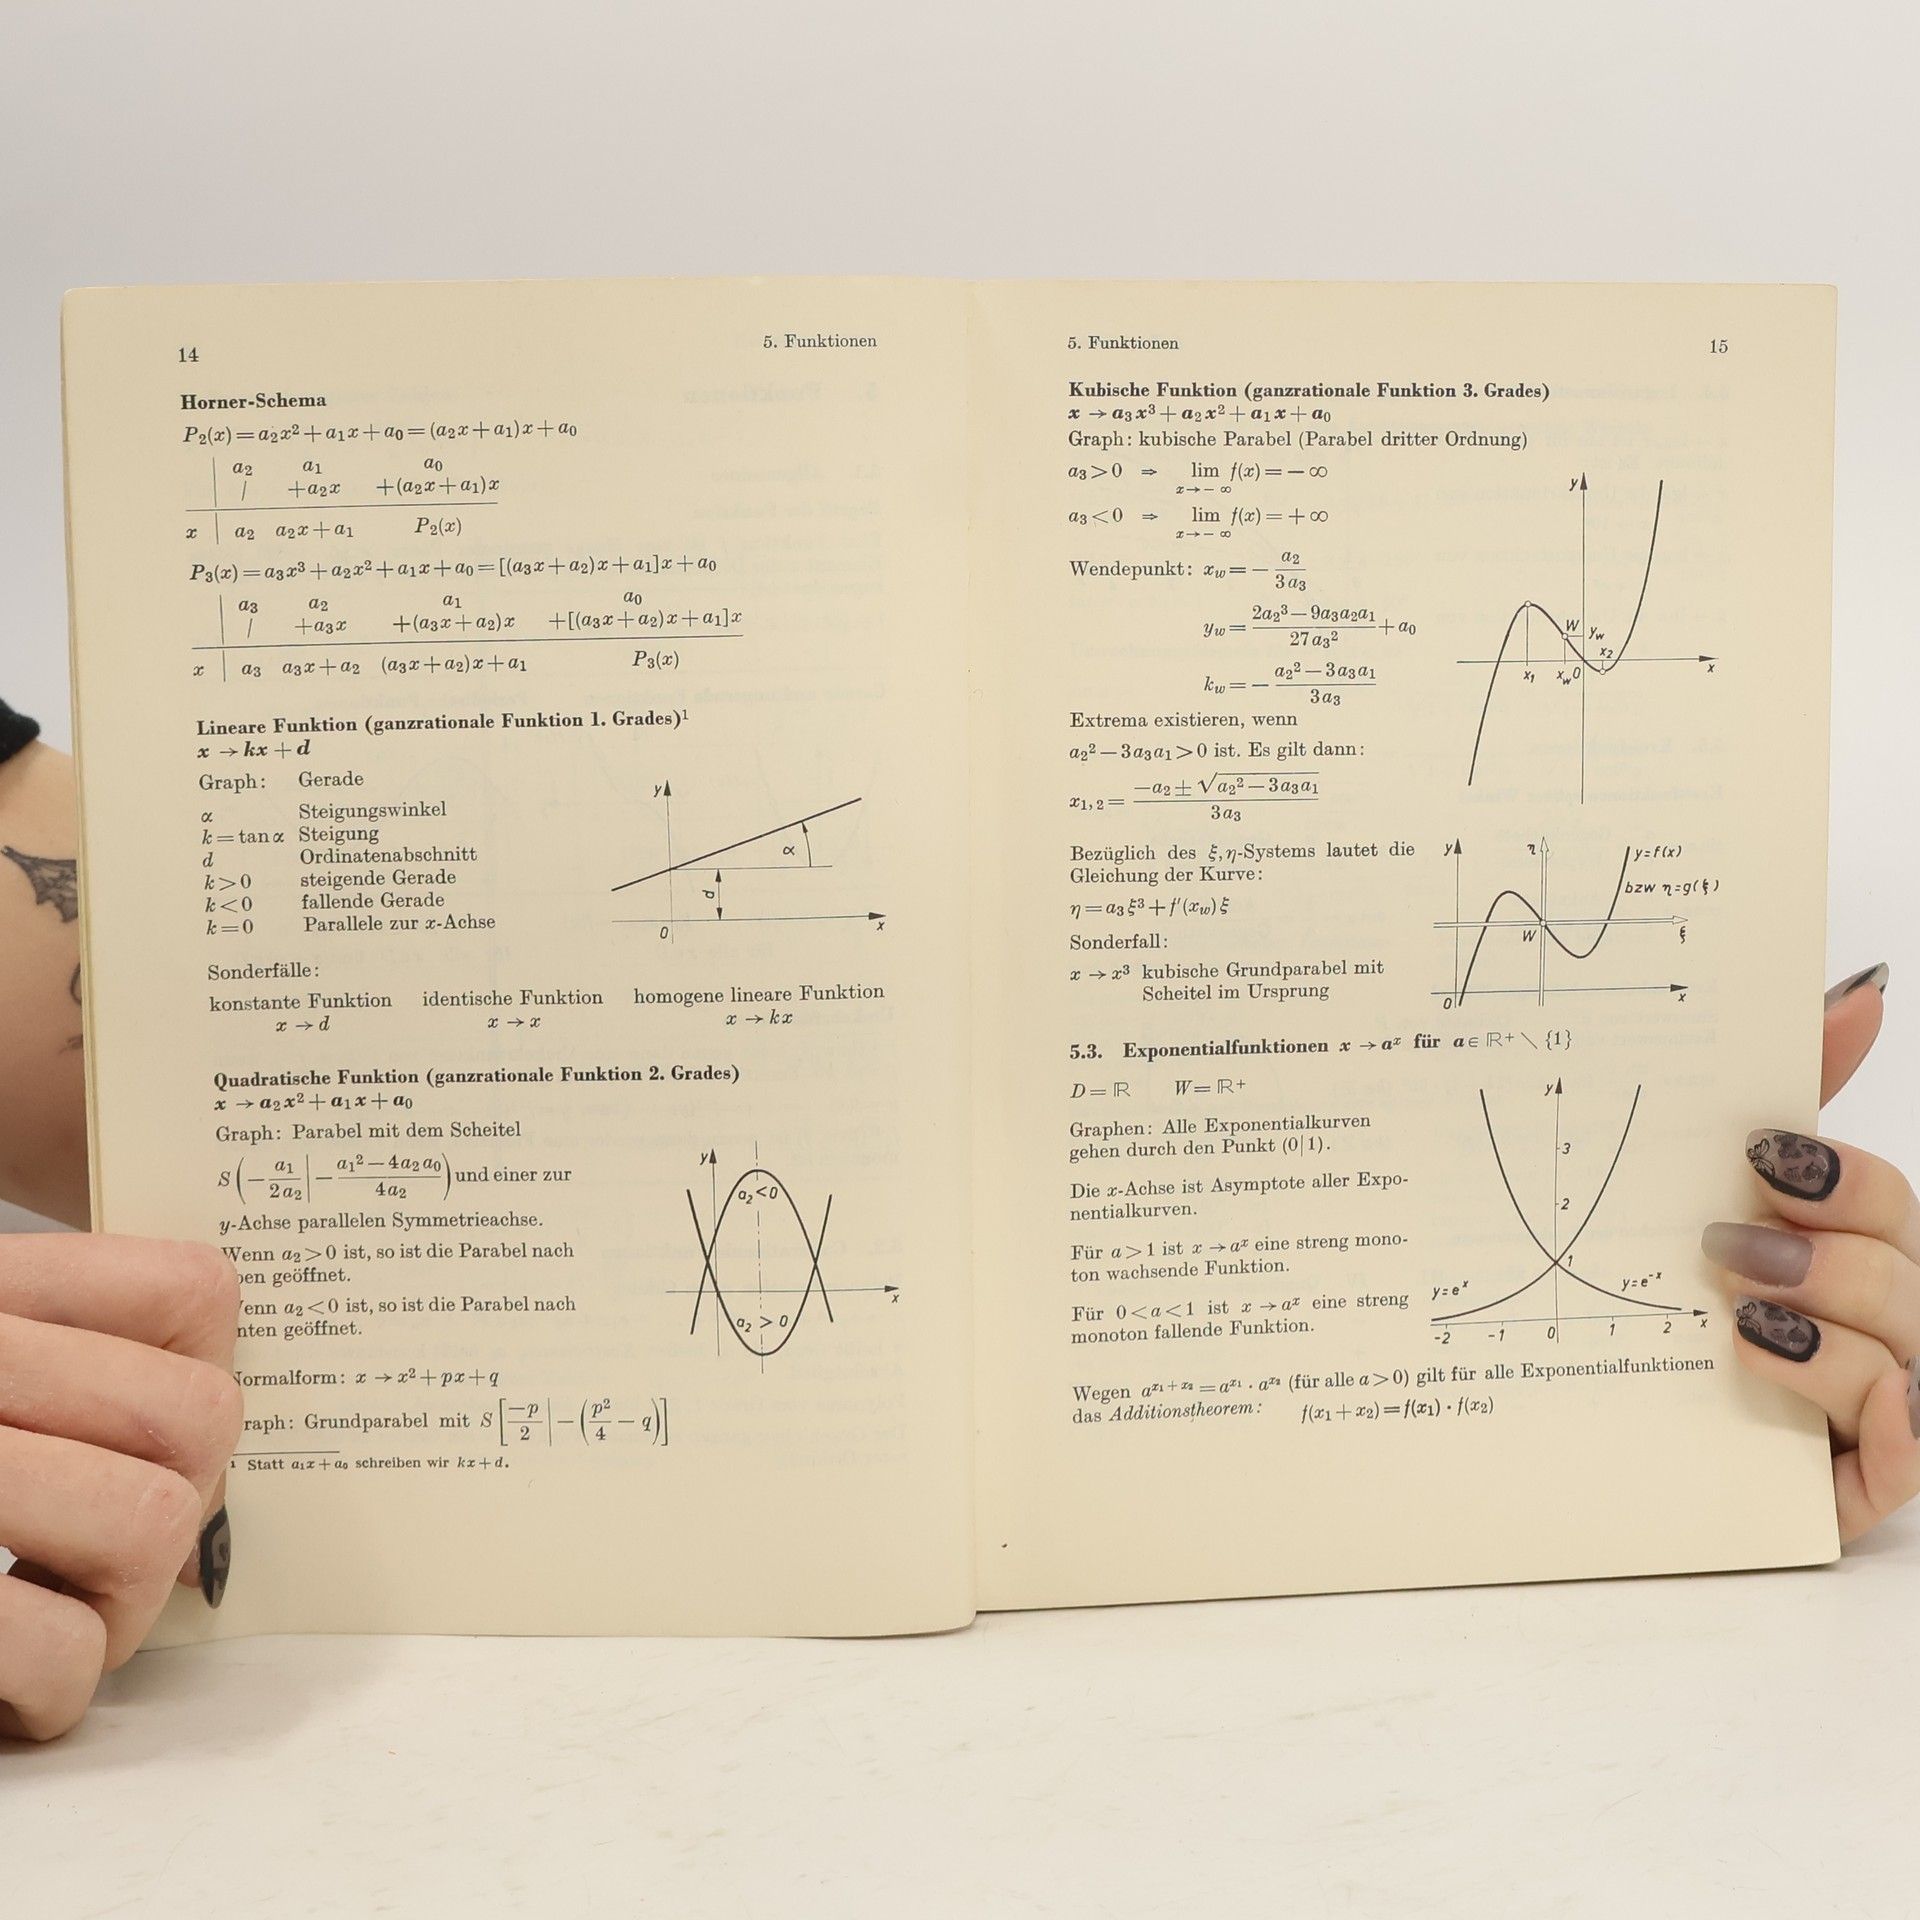 14
5. Funktionen
Horner-Schema
P₂(x)=a₂x²+a₁x+a₀=(a₂x+a₁)x+a₀
a₂ a₁ a₀
/ +a₂x +(a₂x+a₁)x
x a₂ a₂x+a₁ P₂(x)
P₃(x)=a₃x³+a₂x²+a₁x+a₀=[(a₃x+a₂)x+a₁]x+a₀
a₃ a₂ a₁ a₀
/ +a₃x +(a₃x+a₂)x +[(a₃x+a₂)x+a₁]x
x a₃ a₃x+a₂ (a₃x+a₂)x+a₁ P₃(x)
Lineare Funktion (ganzrationale Funktion 1. Grades)¹
x → kx+d
Graph: Gerade
α Steigungswinkel
k=tan α Steigung
d Ordinatenabschnitt
k>0 steigende Gerade
k<0 fallende Gerade
k=0 Parallele zur x-Achse
y
α
d
0
x
Sonderfälle:
konstante Funktion identische Funktion homogene lineare Funktion
x → d x → x x → kx
Quadratische Funktion (ganzrationale Funktion 2. Grades)
x → a₂x²+a₁x+a₀
Graph: Parabel mit dem Scheitel
S(−a₁/2a₂ | −(a₁²−4a₂a₀)/4a₂) und einer zur
y-Achse parallelen Symmetrieachse.
Wenn a₂>0 ist, so ist die Parabel nach
ben geöffnet.
enn a₂<0 ist, so ist die Parabel nach
nten geöffnet.
y
a₂<0
x
a₂ > 0
ormalform: x → x²+px+q
raph: Grundparabel mit S[−p/2 | −(p²/4 − q)]
¹ Statt a₁x+a₀ schreiben wir kx+d.
5. Funktionen
15
Kubische Funktion (ganzrationale Funktion 3. Grades)
x → a₃x³+a₂x²+a₁x+a₀
Graph: kubische Parabel (Parabel dritter Ordnung)
a₃>0 ⇒ lim f(x)=−∞
x→−∞
a₃<0 ⇒ lim f(x)=+∞
x→−∞
Wendepunkt: x_w=−a₂/3a₃
y_w=(2a₂³−9a₃a₂a₁)/27a₃²+a₀
k_w=−(a₂²−3a₃a₁)/3a₃
Extrema existieren, wenn
a₂²−3a₃a₁>0 ist. Es gilt dann:
x₁,₂=(−a₂±√(a₂²−3a₃a₁))/3a₃
y
W y_w
x₂
x₁ x_w 0 x
Bezüglich des ξ,η-Systems lautet die
Gleichung der Kurve:
η=a₃ξ³+f′(x_w)ξ
Sonderfall:
x → x³ kubische Grundparabel mit
Scheitel im Ursprung
y η y=f(x)
bzw η=g(ξ)
W ξ
0 x
5.3. Exponentialfunktionen x → aˣ für a∈ℝ⁺∖{1}
D=ℝ W=ℝ⁺
Graphen: Alle Exponentialkurven
gehen durch den Punkt (0|1).
Die x-Achse ist Asymptote aller Expo-
nentialkurven.
Für a>1 ist x → aˣ eine streng mono-
ton wachsende Funktion.
Für 0<a<1 ist x → aˣ eine streng
monoton fallende Funktion.
y
3
2
1
y=eˣ y=e⁻ˣ
-2 -1 0 1 2 x
Wegen a^(x₁+x₂)=a^x₁·a^x₂ (für alle a>0) gilt für alle Exponentialfunktionen
das Additionstheorem: f(x₁+x₂)=f(x₁)·f(x₂)